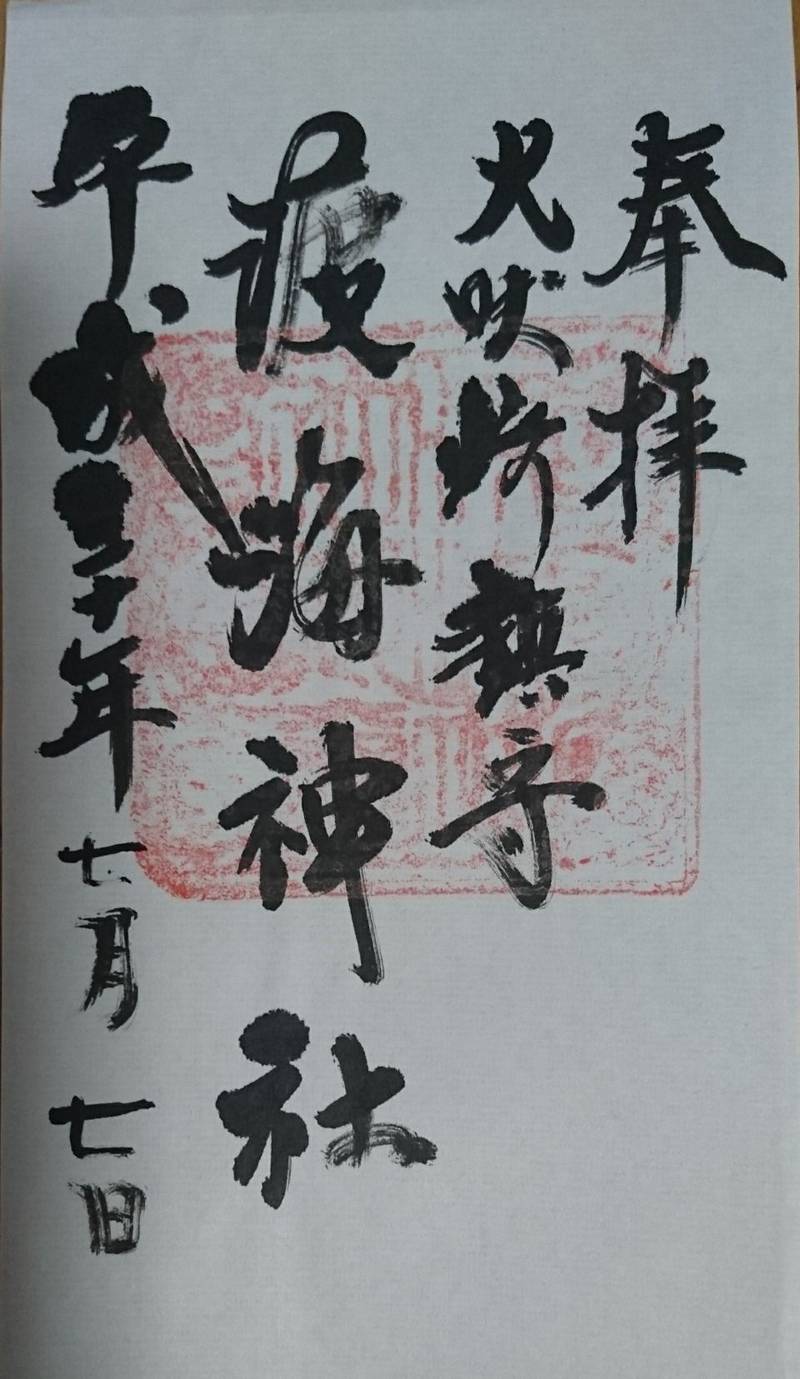 奉拝
犬吠崎鎮守
渡海神社
平成三十年七月七日